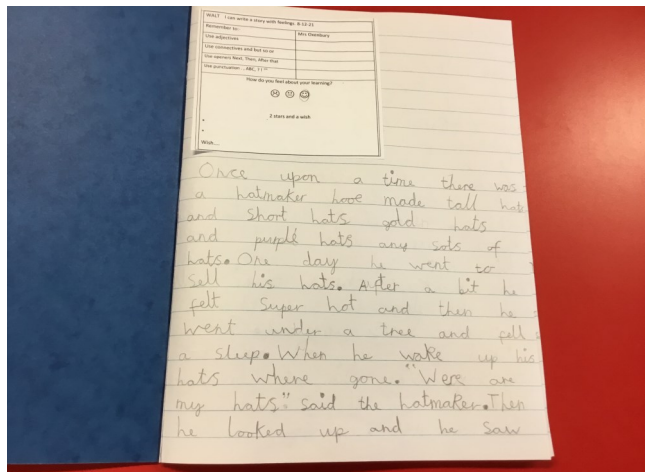 WALT I can write a story with feelings. 8-12-21
Remember to:
Use adjectives
Use connectives and but so or
Use openers Next, Then, After that
Use punctuation
How do you feel about your learning?
2 stars and a wish
Wish...
Once upon a time there was
a hatmaker hooe made tall hats
and short hats gold hats
and purple hats any sots of
hats. One day he went to
sell his hats. After a bit he
felt super hot and then he
went under a tree and fell
a sleep. When he wake up his
hats where gone. "Were are
my hats" said the hatmaker. Then
he looked up and he saw